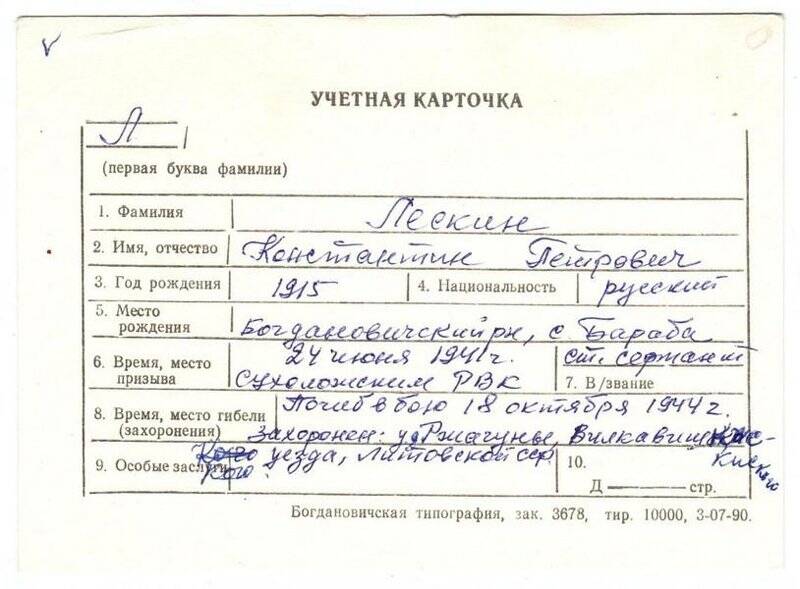 УЧЕТНАЯ КАРТОЧКА
Л
(первая буква фамилии)
1. Фамилия Лескин
2. Имя, отчество Константин Петрович
3. Год рождения 1915 4. Национальность русский
5. Место рождения Богдановичский рн, с. Бараба
6. Время, место призыва 24 июня 1941 г.
Сухоложским РВК
ст. сержант
7. В/звание
8. Время, место гибели (захоронения) Погиб в бою 18 октября 1944 г.
Захоронен: у д. Ржагунье, Вилкавиш
уезда, Литовской сср
9. Особые заслуги
10.
Д стр.
Богдановичская типография, зак. 3678, тир. 10000, 3-07-90.